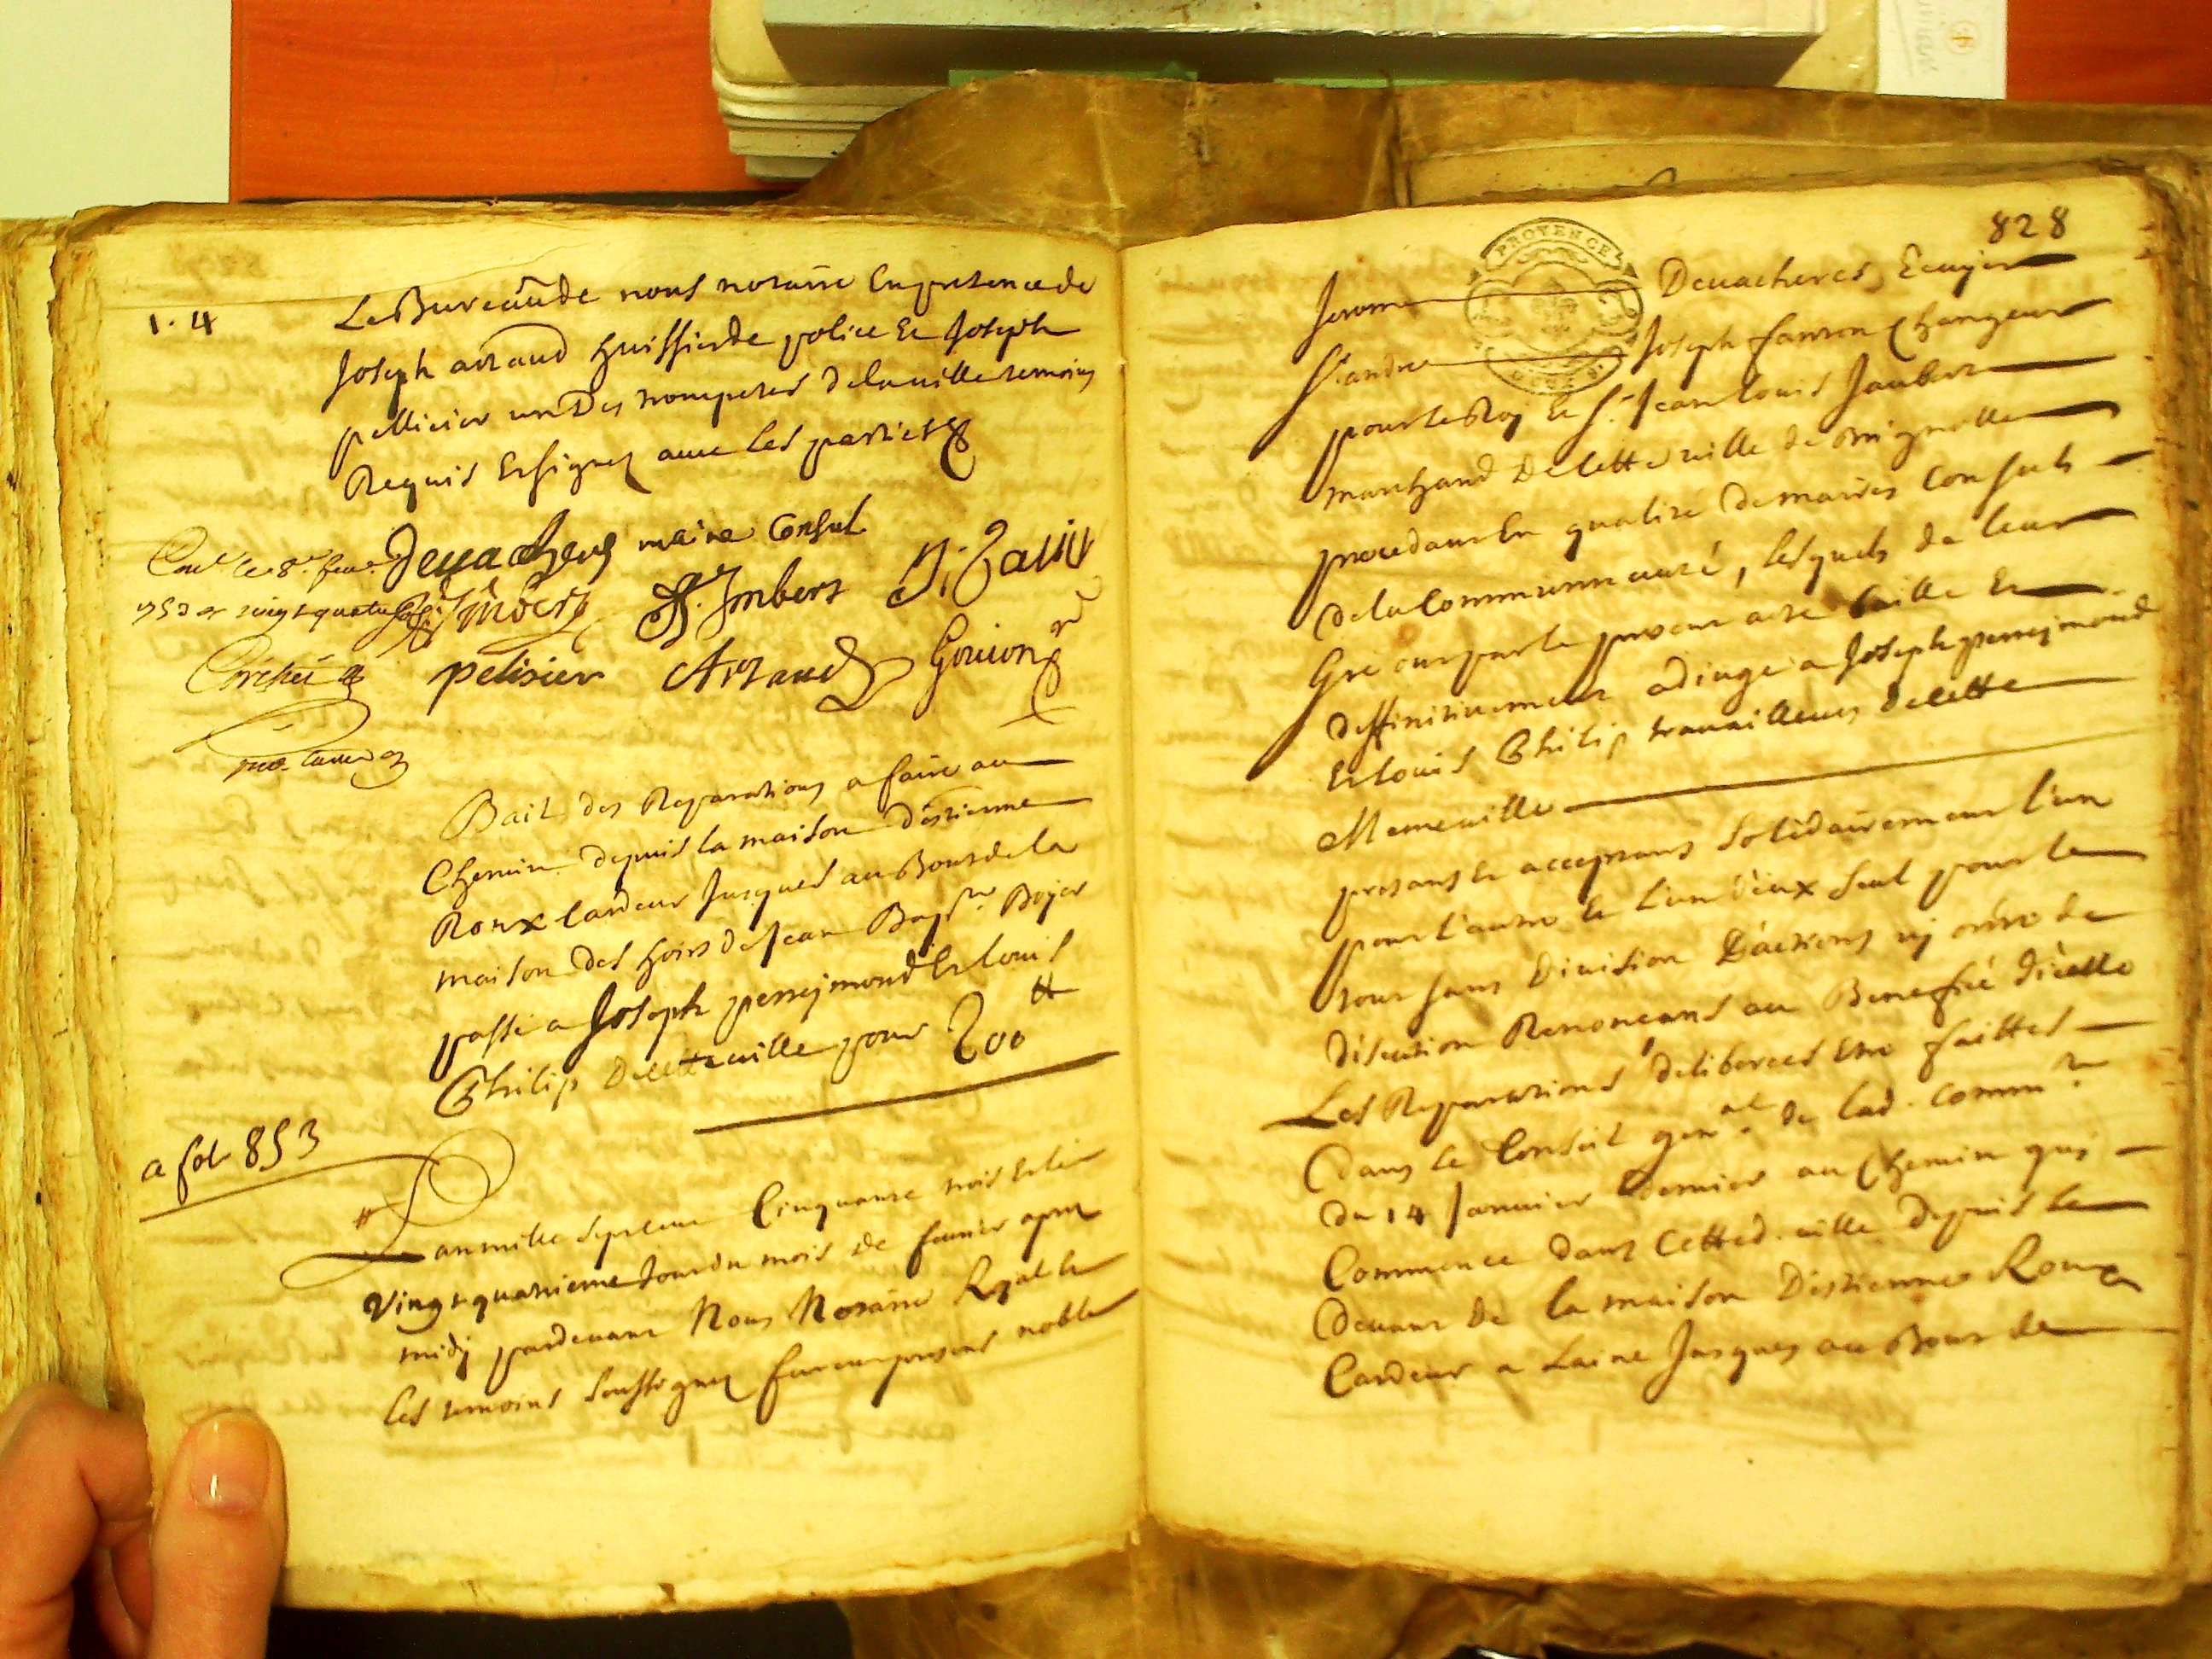 1. 4
Le Bureau de nous notaire En presence de
Joseph arnaud huissier de police Et Joseph
pellicier un Des trompetes de la ville temoins
Requis Et signez avec les parties
Devacheres maire Consul
Conlé le 8e feur.
1753 et
Imbert J. Imbert
pelisier Arnaud Goujon
Bail des Reparations a faire au
Chemin depuis la maison d'estienne
Roux Cardeur Jusques au Bout de la
maison des hoirs de Jean Bapte. Boyer
passé a Joseph perreymond Et louis
Philip De cette ville pour 200 ₶
a fol 853
L'an mille sept cent Cinquante trois et le
vingt quatrieme Jour du mois de fevrier apres
midy pardevant Nous Notaire Royal Et
Les temoins soussignez furent presens noble
828
PROVENCE
Jerome Devacheres, Ecuyer
Sr. andre Joseph fanton Changeur
pour le Roy Et Sr. Jean louis Jaubert
marchand De cette ville de Brignolle
procedant En qualité de maires Consuls
de la Communauté, lesquels de leur
Gré ont par le present acte baille Et
deffinitivement adjugé a Joseph perreymond
Et louis Philip travailleurs de cette
Meme ville
presans Et acceptans solidairement l'un
pour l'autre Et l'un d'eux seul pour le
tout sans Division D'actions ny ordre de
discution Renonceans au Benefice d'icelle
Les Reparations deliberees Etre faittes
Dans le Conseil genal. de lad. Commté.
du 14 Janvier dernier au Chemin qui
Commence dans Cetted. ville depuis le
Devant De la maison D'estienne Roux
Cardeur a Laine Jusques au Bout de